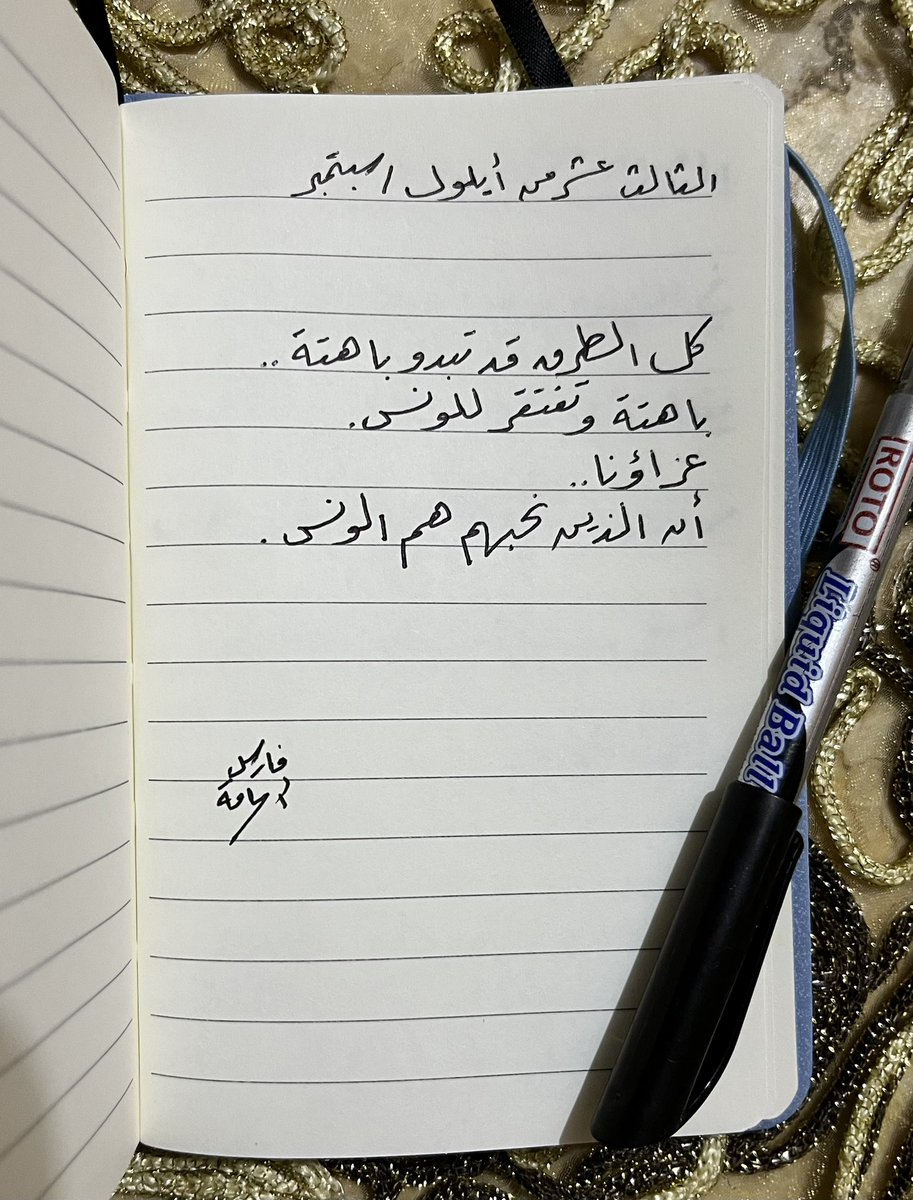 الثالث عشر من أيلول / سبتمبر
كل الطرق قد تبدو باهتة ..
باهتة وتفتقر للونس.
عزاؤنا..
أن الذين نحبهم هم الونس .
فارس
أسامة
ROTO®
Liquid Ball